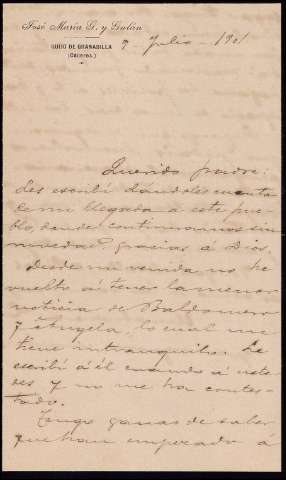 José María G. y Galán
GUIJO DE GRANADILLA
(Cáceres.)
7 - Julio - 1901
Querido padre:
Les escribí dándoles cuenta
de mi llegada á este pue-
blo, donde continuamos sin
novedad, gracias á Dios.
Desde mi venida no he
vuelto á tener la menor
noticia de Baldomero
y lo cual me
tiene intranquilo. Le
escribí á él cuando á uste-
des y no me ha contes-
tado.
Tengo ganas de saber
que han empezado á